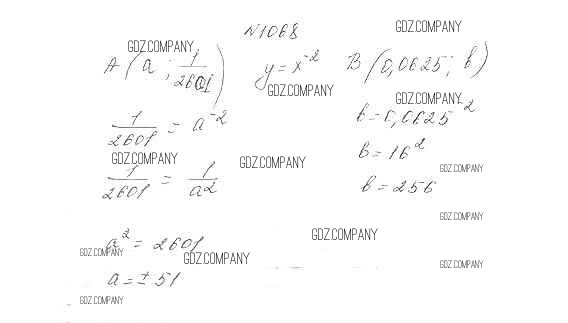 N1068
GDZ.COMPANY
GDZ.COMPANY
A (a ; 1/2601) y = x^-2 B (0,0625; b)
GDZ.COMPANY
GDZ.COMPANY
1/2601 = a^-2 b = 0,0625^-2
b = 16^2
GDZ.COMPANY
GDZ.COMPANY
GDZ.COMPANY
1/2601 = 1/a^2 b = 256
GDZ.COMPANY
GDZ.COMPANY
a^2 = 2601
GDZ.COMPANY
GDZ.COMPANY
GDZ.COMPANY
a = ± 51
GDZ.COMPANY